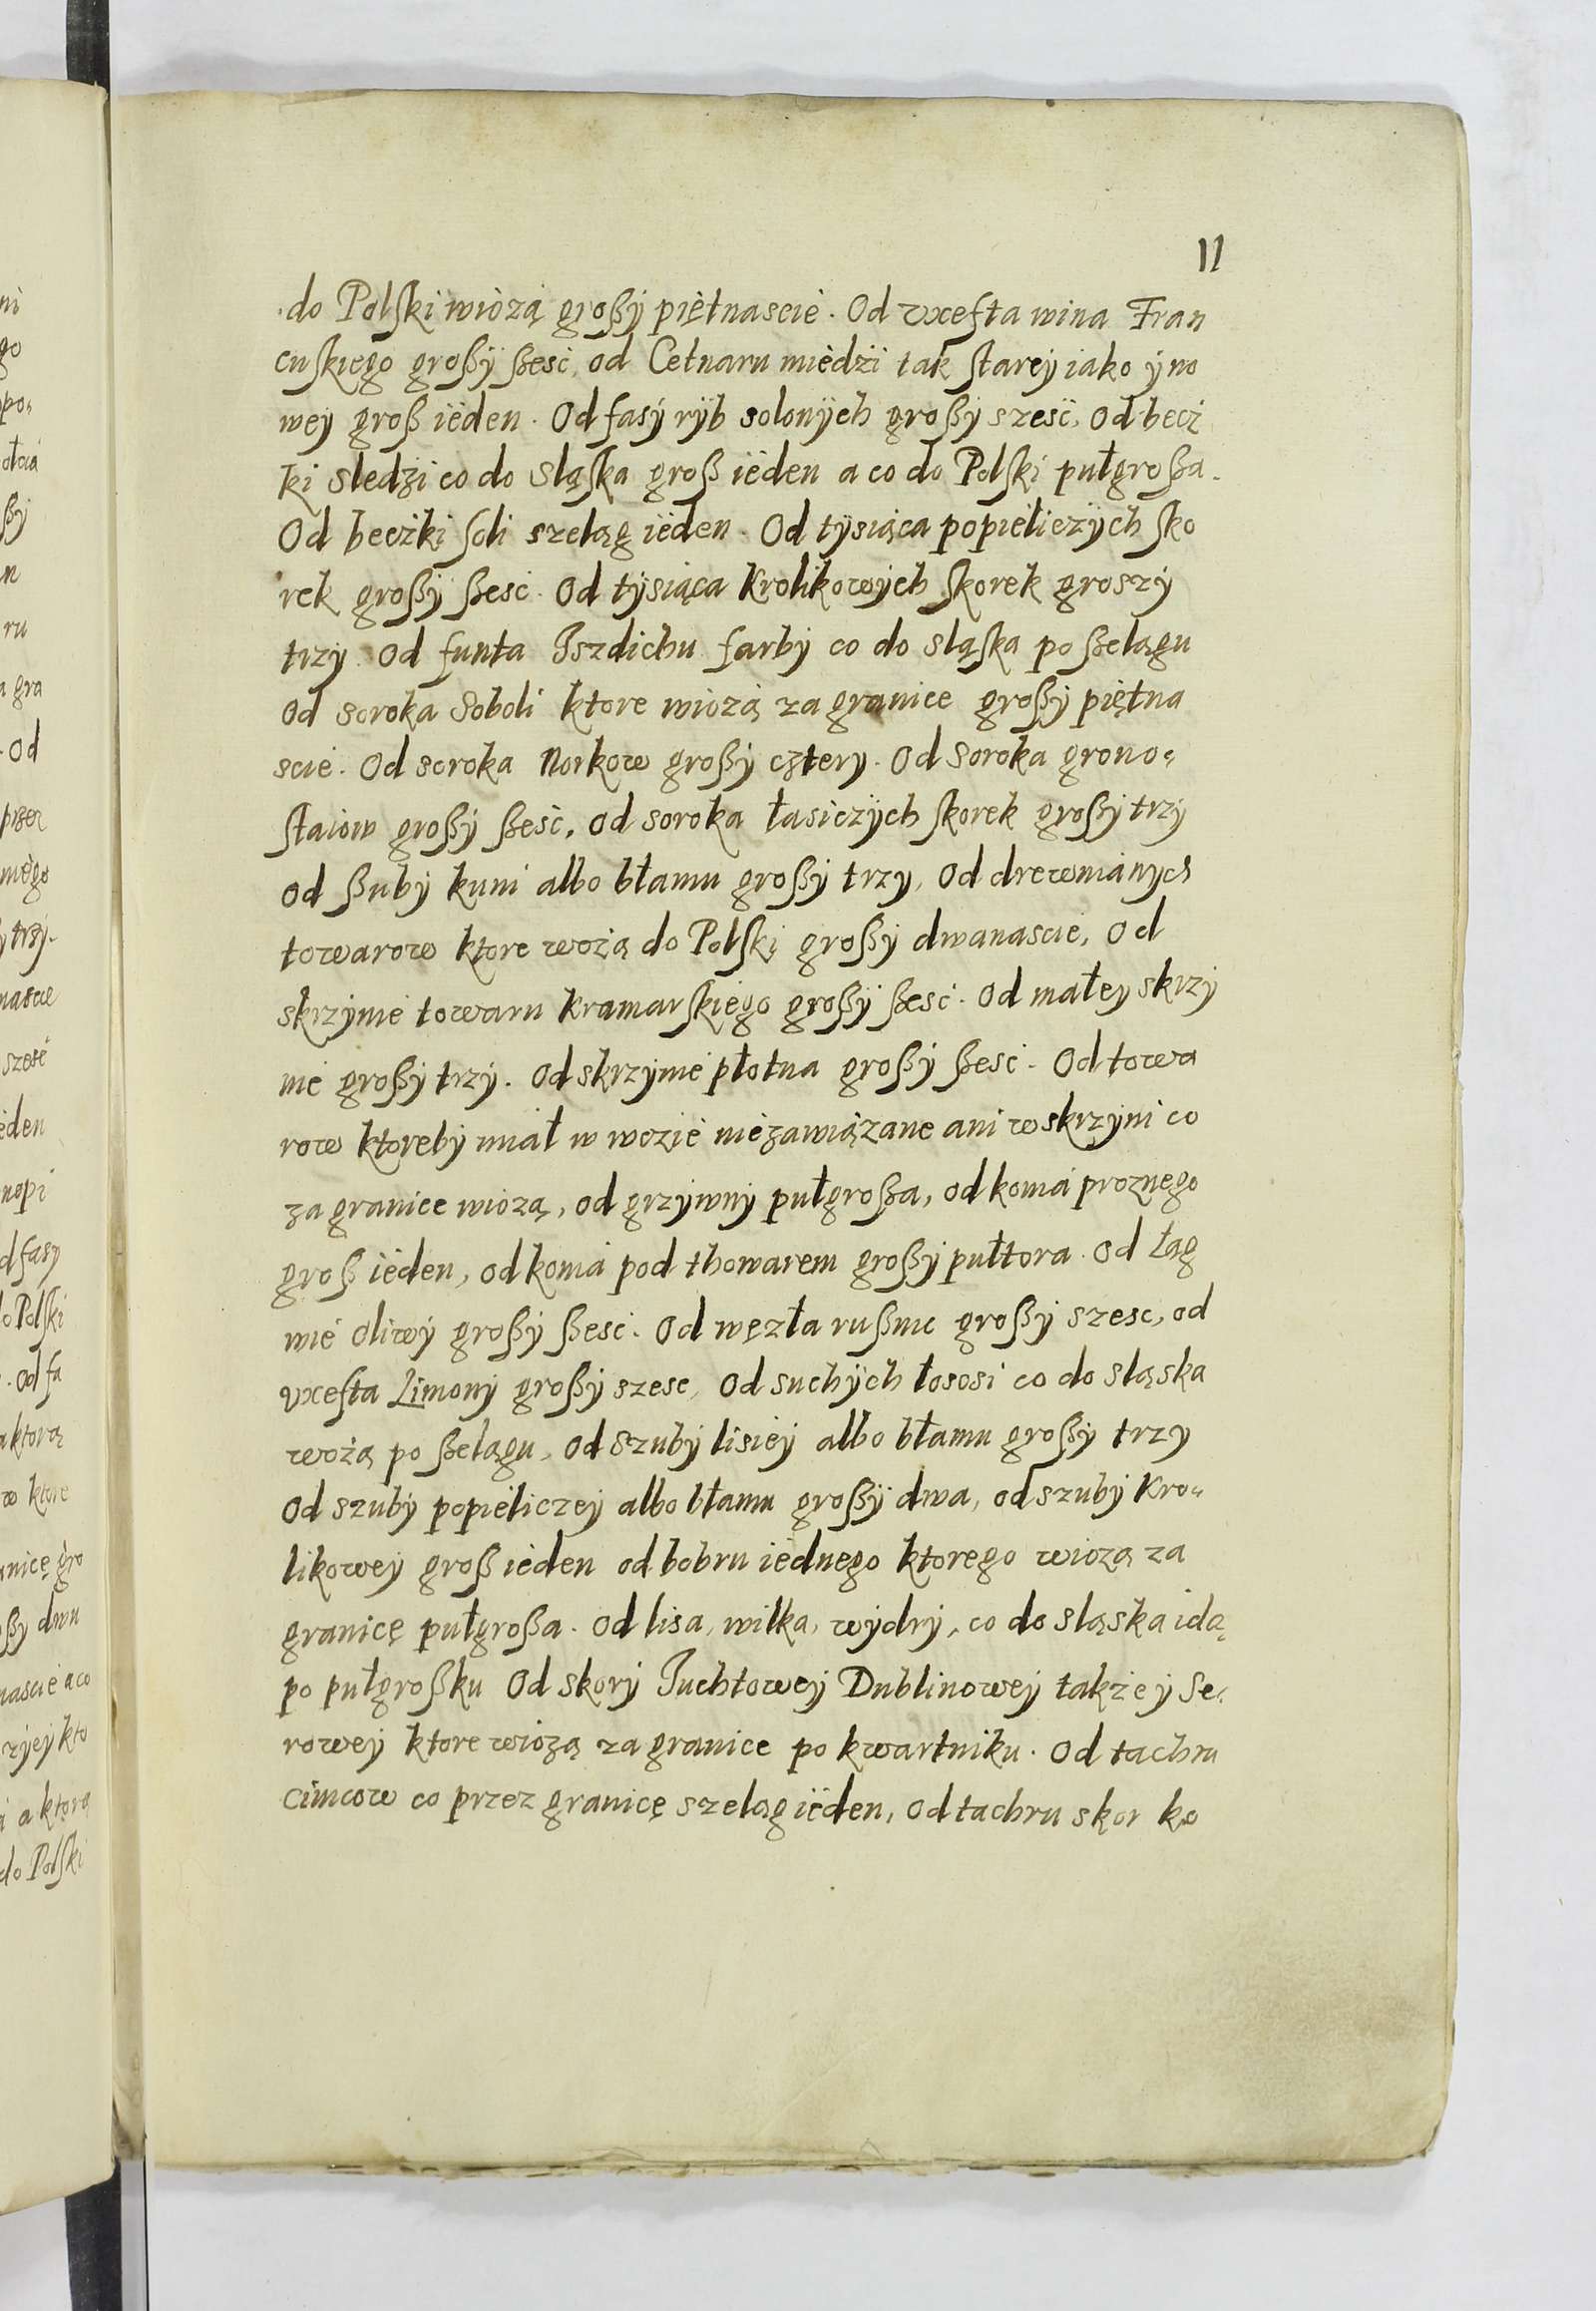 11
do Polski wiozą großy piętnascie. Od vxefta wina Fran
cuskiego großy ßesc, od Cetnaru miedzi tak starey iako y no
wey groß ieden. Od fasy ryb solonych großy szesc, Od becz
ki sledzi co do Sląska groß ieden a co do Polski pułgroßa.
Od beczki soli szeląg ieden. Od tysiąca popieliczych sko
rek großy ßesc. Od tysiąca Krolikowych skorek groszy
trzy. Od funta Iszdichu farby co do sląska po ßelągu
Od soroka Soboli ktore wiozą za granice großy piętna
scie. Od soroka Norkow großy cztery. Od Soroka grono=
staiow großy ßesc, Od soroka łasiczych skorek großy trzy
Od ßuby kuni albo błamu großy trzy, Od drewnianych
towarow ktore wożą do Polski großy dwanascie, Od
skrzynie towaru kramarskiego großy ßesc. Od małey skrzy
nie großy trzy. Od skrzynie płotna großy ßesc. Od towa
row ktoreby miał w wozie niezawiązane ani w skrzyni co
za granice wiozą, od grzywny pułgroßa, od konia proznego
groß ieden, od konia pod thowarem großy pułtora. Od Łag
wie oliwy großy ßesc. Od węzła rußnic großy szesc, od
vxefta Limony großy szesc, Od suchych łososi co do sląska
wożą po ßelągu, Od Szuby lisiey albo błamu großy trzy
Od szuby popieliczey albo błamu großy dwa, od szuby Kro=
likowey groß ieden od bobru iednego ktorego wiozą za
granicę pułgroßa. Od lisa, wilka, wydry, co do sląska idą
po pułgroßku Od skory Iuchtowey Dublinowey także y Se=
rowey ktore wiozą za granice po kwartniku. Od tachru
cimcow co przez granicę szeląg ieden, Od tachru skor ko